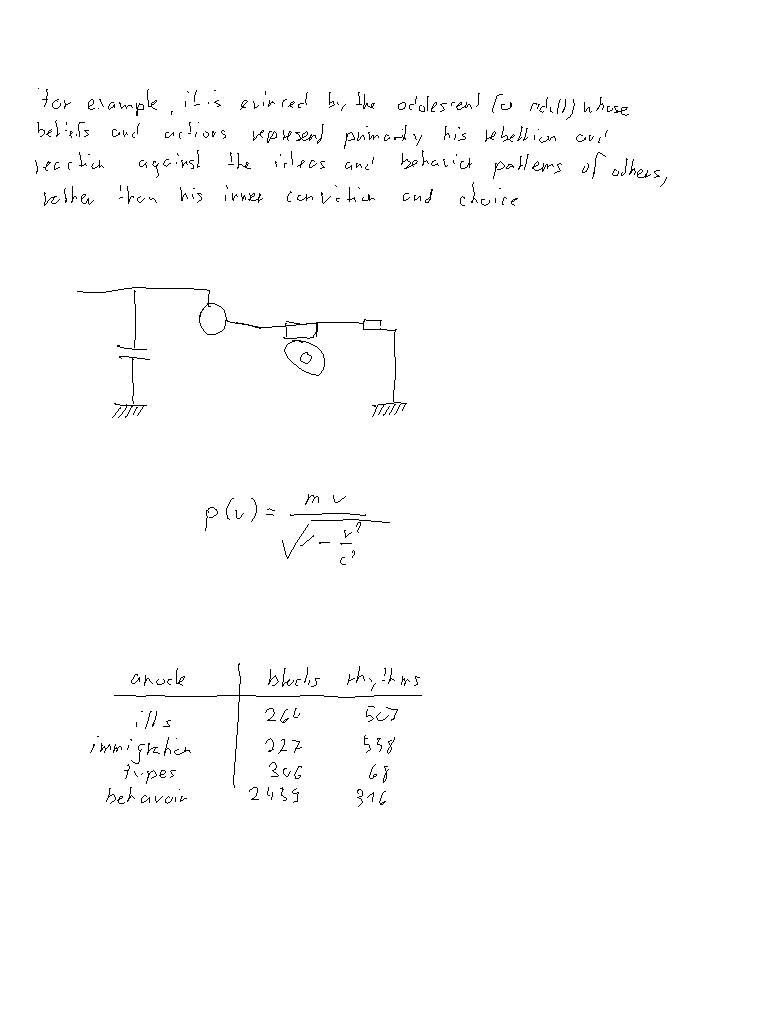 For example, it is evinced by the adolescent (or adult) whose
beliefs and actions represent primarily his rebellion and
reaction against the ideas and behavior patterns of others,
rather than his inner conviction and choice
p(v) = mv / √(1 - v²/c²)
anode blocks rhythms
ills 260 507
immigration 227 558
types 306 68
behavoir 2439 316